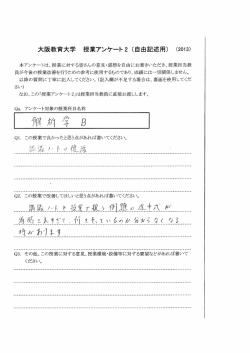 大阪教育大学 授業アンケート2(自由記述用) (2013)
本アンケートは、授業に対する皆さんの意見・感想を自由にお書きいただき、授業担当教
員が今後の授業改善を行うための参考に使用するものであり、成績には一切関係しません。
以降の質問に回答してください。(記入欄が不足する場合は、裏面を使用してくだ
さい)
なお、この「授業アンケート2」は授業担当教員に直接お渡しします。
Qa. アンケート対象の授業科目名称
解析学 B
Q1. この授業で良かったと思う点があれば書いてください。
講義ノートの
Q2. この授業で改善してほしいと思う点があれば書いてください。
講義ノートや授業で扱う例題の途中式が
省略されすぎて、何をしているのか分からなくなる
時がありました
Q3. その他、この授業に対する意見、授業環境・設備等に対する要望などがあれば書いて
ください。